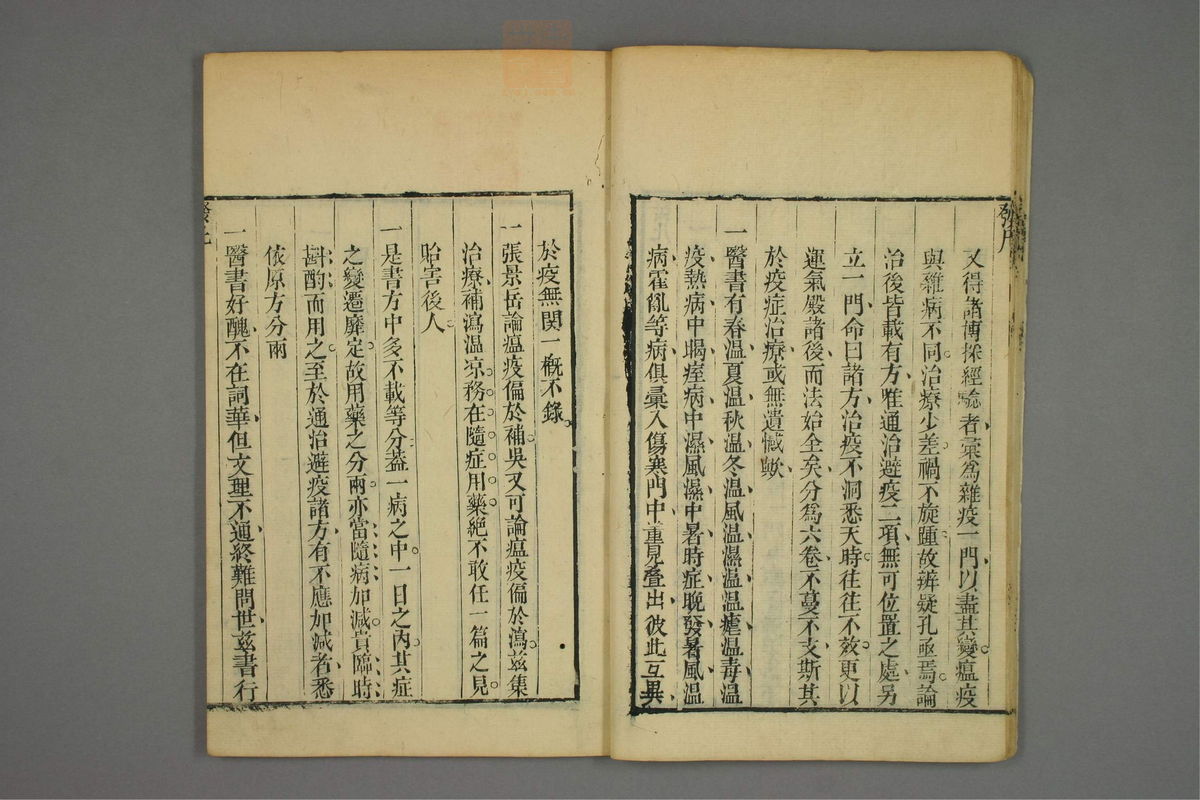 又得諸博採經驗者彙為雜疫一門以盡其變瘟疫
與雜病不同治療少差禍不旋踵故辨疑孔亟焉論
治後皆載有方唯通治避疫二項無可位置之處另
立一門命曰諸方治疫不洞悉天時往往不效更以
運氣殿諸後而法始全矣分為六卷不蔓不支斯其
於疫症治療或無遺憾歟
一醫書有春温夏温秋温冬温風温濕温温瘧温毒温
疫熱病中暍痓病中濕風濕中暑時症晚發暑風温
病霍亂等病俱彙入傷寒門中重見疊出彼此互異
於疫無関一概不錄
一張景岳論瘟疫偏於補吳又可論瘟疫偏於瀉兹集
治療補瀉温凉務在隨症用藥絕不敢任一篇之見
貽害後人
一是書方中多不載等分葢一病之中一日之內其症
之變遷靡定故用藥之分兩亦當隨病加減貴臨時
斟酌而用之至於通治避疫諸方有不應加減者悉
依原方分兩
一醫書好醜不在詞華但文理不通終難問世兹書行